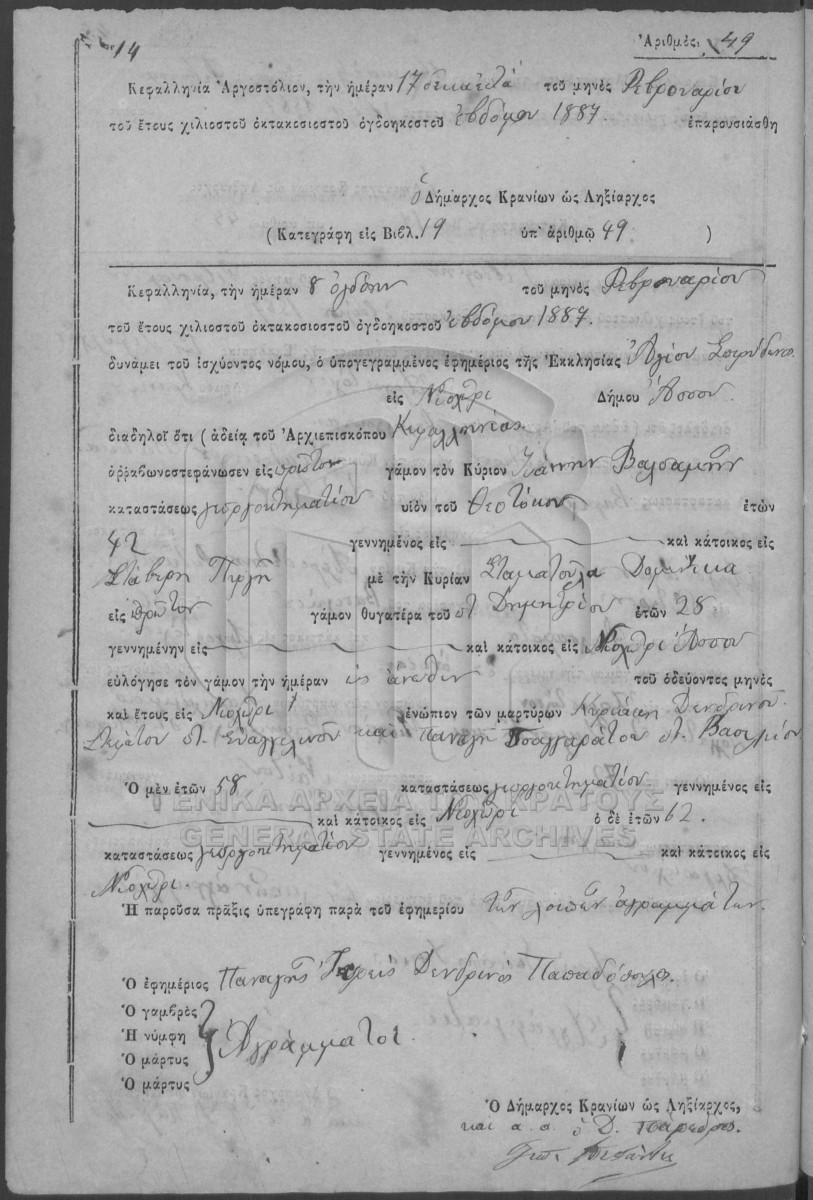 14
Ἀριθμὸς. 49
Κεφαλληνία Ἀργοστόλιον, τὴν ἡμέραν 17 δεκαεπτὰ τοῦ μηνὸς Φεβρουαρίου
τοῦ ἔτους χιλιοστοῦ ὀκτακοσιοστοῦ ὀγδοηκοστοῦ ἑβδόμου 1887. ἐπαρουσιάσθη
ὁ Δήμαρχος Κρανίων ὡς Ληξίαρχος
( Κατεγράφη εἰς Βιβλ. 19 ὑπ' ἀριθμῷ 49 )
Κεφαλληνία, τὴν ἡμέραν 8 ὀγδόην τοῦ μηνὸς Φεβρουαρίου
τοῦ ἔτους χιλιοστοῦ ὀκτακοσιοστοῦ ὀγδοηκοστοῦ ἑβδόμου 1887.
δυνάμει τοῦ ἰσχύοντος νόμου, ὁ ὑπογεγραμμένος ἐφημέριος τῆς Ἐκκλησίας Ἁγίου Σπυρίδωνο
εἰς Νεοχῶρι Δήμου Ἄσσου
διαδηλοῖ ὅτι ( ἀδείᾳ τοῦ Ἀρχιεπισκόπου Κεφαλληνίας
ἀῤῥαβωνοστεφάνωσεν εἰς πρῶτον γάμον τὸν Κύριον Ἰωάννην Βαλσαμῆν
καταστάσεως γεωργοκτηματίου υἱὸν τοῦ Θεοτόκου ἐτῶν
42 γεννημένος εἰς καὶ κάτοικος εἰς
Πυργὶ μὲ τὴν Κυρίαν Σταματοῦλα
εἰς πρῶτον γάμον θυγατέρα τοῦ Δημητρίου ἐτῶν 28
γεννημένην εἰς καὶ κάτοικος εἰς Νεοχῶρι Ἄσσου
εὐλόγησε τὸν γάμον τὴν ἡμέραν ὡς ἄνωθεν τοῦ ὁδεύοντος μηνὸς
καὶ ἔτους εἰς Νεοχῶρι ἐνώπιον τῶν μαρτύρων Κυριάκη Δενδρινοῦ
Εὐαγγελινοῦ καὶ Παναγῆ Τσαγγαράτου Βασιλείου
Ὁ μὲν ἐτῶν 58 καταστάσεως γεωργοκτηματίου γεννημένος εἰς
καὶ κάτοικος εἰς Νεοχῶρι ὁ δὲ ἐτῶν 62.
καταστάσεως γεωργοκτηματίου γεννημένος εἰς καὶ κάτοικος εἰς
Νεοχῶρι.
Ἡ παροῦσα πρᾶξις ὑπεγράφη παρὰ τοῦ ἐφημερίου τῶν λοιπῶν ἀγραμμάτων.
Ὁ ἐφημέριος Παναγῆς Ἱερεὺς Δενδρινὸς Παπαδόπουλος.
Ὁ γαμβρὸς
Ἡ νύμφη
Ἀγράμματοι
Ὁ μάρτυς
Ὁ μάρτυς
Ὁ Δήμαρχος Κρανίων ὡς Ληξίαρχος,
καὶ α. α. ὁ Δ. Πάρεδρος.
ΓΕΝΙΚΑ ΑΡΧΕΙΑ ΤΟΥ ΚΡΑΤΟΥΣ
GENERAL STATE ARCHIVES